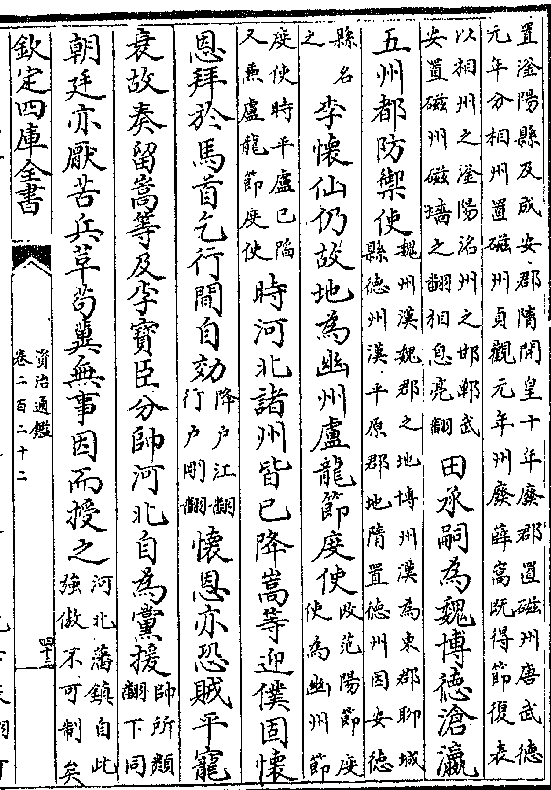 置滏陽縣及成安郡隋開皇十年廢郡置磁州唐武德
元年分相州置磁州貞觀元年州廢薛嵩既得節復表
以相州之滏陽洺州之邯鄲武
安置磁州磁墻之翻相息亮翻
田承嗣為魏博德滄瀛
五州都防禦使
魏州漢魏郡之地博州漢為東郡聊城
縣德州漢平原郡地隋置德州因安德
縣名
之
李懷仙仍故地為幽州盧龍節度使
改范陽節度
使為幽州節
度使時平盧已陷
又兼盧龍節度使
時河北諸州皆已降嵩等迎僕固懷
恩拜於馬首乞行間自効
降户江翻
行户剛翻
懷恩亦恐賊平寵
衰故奏留嵩等及李寶臣分帥河北自為黨援
帥所類
翻下同
朝廷亦厭苦兵革茍冀無事因而授之
河北藩鎮自此
強傲不可制矣
欽定四庫全書
資治通鑑
卷二百二十二
四十三